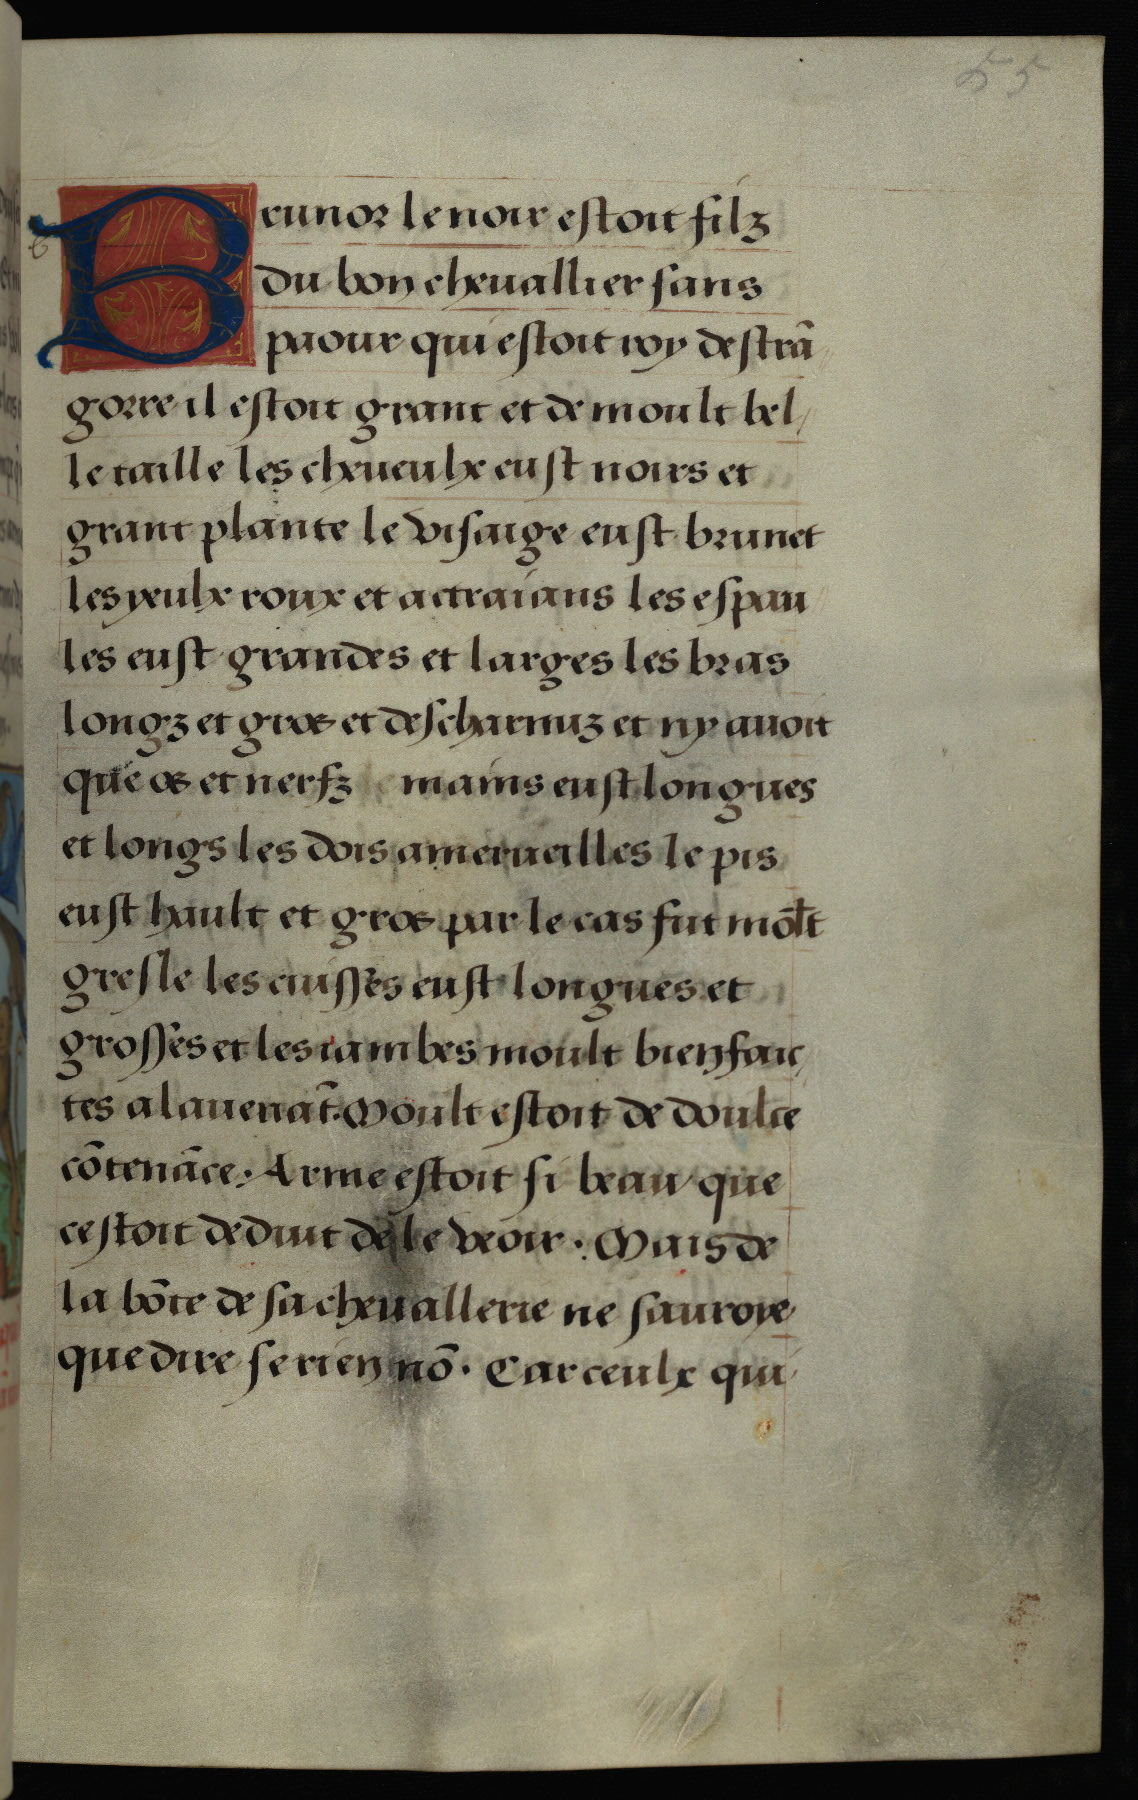 55
Brunor le noir estoit filz
du bon chevallier sans
paour qui estoit roy destrā
gorre il estoit grant et de moult bel/
le taille les cheveulx eust noirs et
grant plante le visaige eust brunet
les yeulx roux et actraians les espau
les eust grandes et larges les bras
longz et gros et descharnuz et ny avoit
que os et nerfz mains eust longues
et longs les dois amerueilles le pis
eust hault et gros par le cas fut mōlt
gresle les cuisses eust longues et
grosses et les iambes moult bien faic/
tes alauenāt. Moult estoit de doulce
cōtenāce. Arme estoit si beau que
cestoit deduit de le veoir. Mais de
la bōte de sa chevallerie ne sauroye
que dire se rien nō. Car ceulx qui